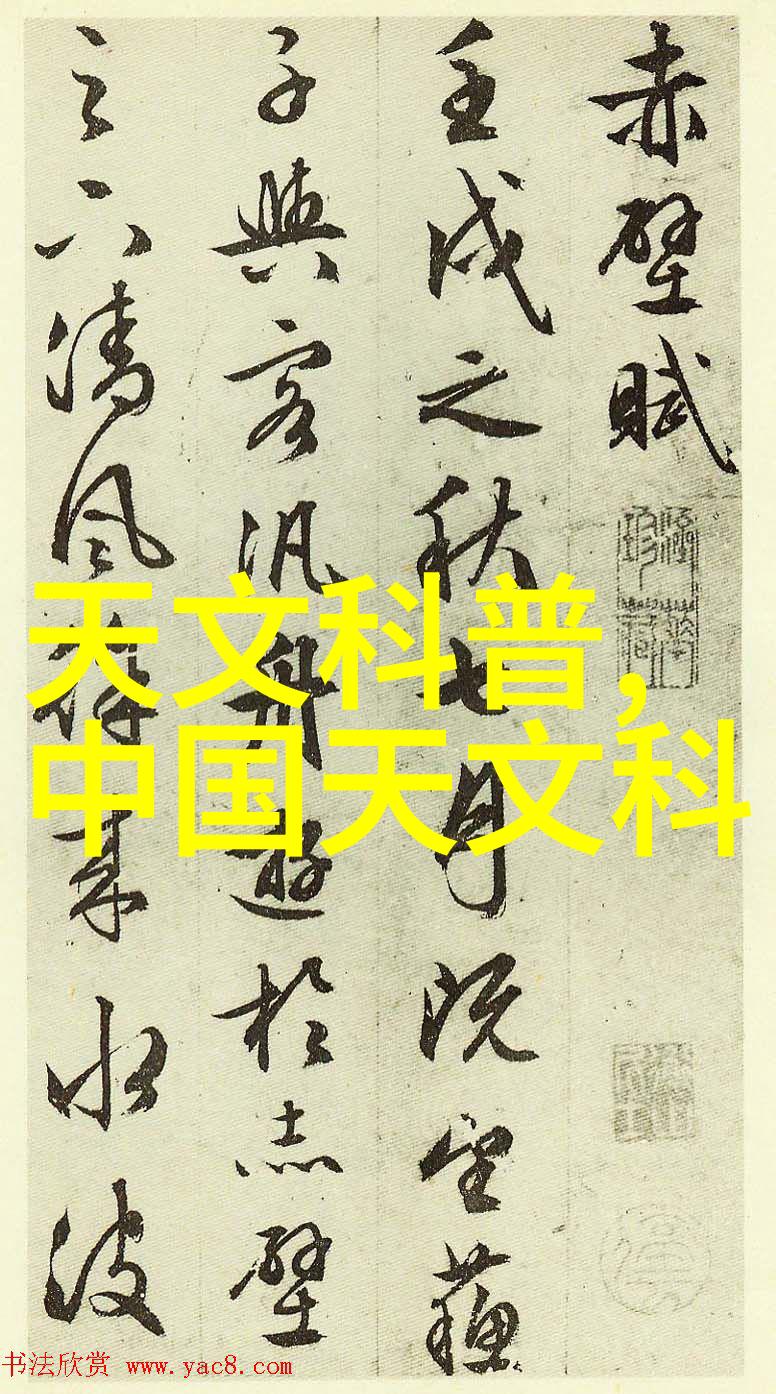 赤壁賦
壬戌之秋七月既望蘇
子與客汎舟遊於赤壁
之下清風徐來水波
天文科普,
中国天文科
书法欣赏 www.yac8.com